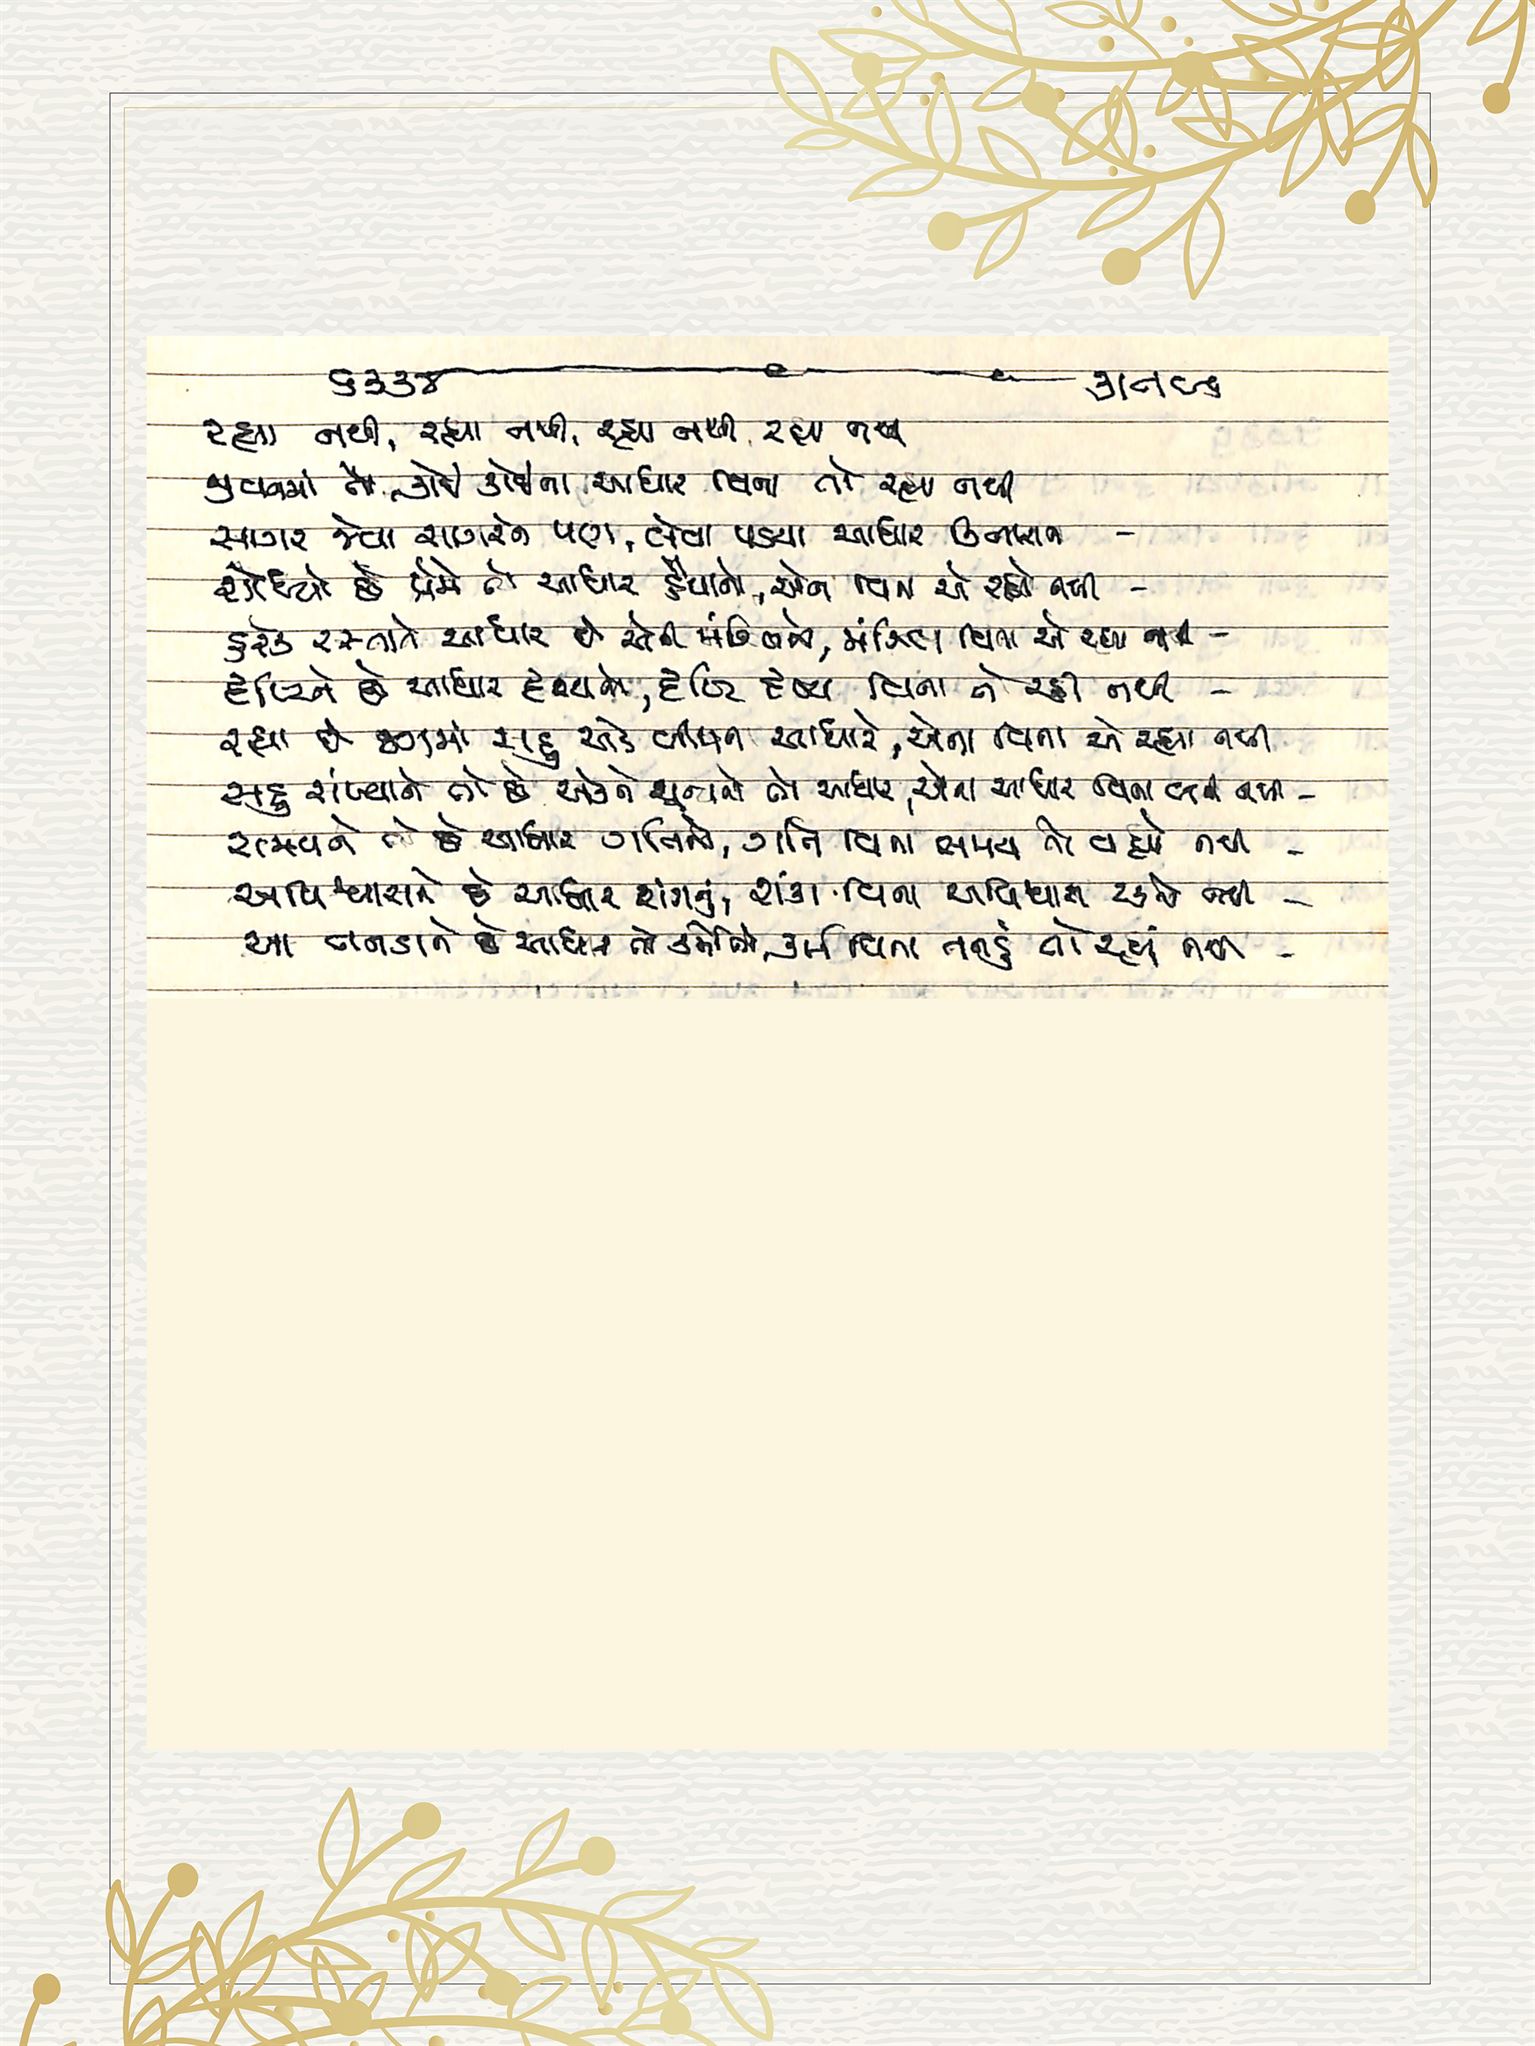 ૬૩૩૪
રહ્યા નથી, રહ્યા નથી, રહ્યા નથી, રહ્યા નથી
જીવનમાં તો, કોઈ કોઈના આધાર વિના તો રહ્યા નથી
સાગર જેવા સાગરને પણ, લેવા પડયા આધાર -
શોધ્યો છે પ્રેમે તો આધાર હૈયાનો, એના વિના એ રહ્યો નથી -
દરેક રસ્તાને આધાર છે એની મંઝિલનો, મંઝિલ વિના એ રહ્યા નથી -
દૃષ્ટિને છે આધાર દૃશ્યનો, દૃષ્ટિ દૃશ્ય વિના તો રહી નથી -
રહ્યા છે જગમાં સહુ એક બીજાના આધારે, એના વિના એ રહ્યા નથી
સહુ સંખ્યાને તો છે એક ને શૂન્યનો તો આધાર, એના આધાર વિના નથી -
સમયને તો છે આધાર ગતિનો, ગતિ વિના સમય તો વહ્યો નથી -
અવિશ્વાસને છે આધાર શંકાનું, શંકા વિના અવિશ્વાસ ટકતો નથી -
આ તનડાને છે આધાર તો કર્મોનો, કર્મ વિના તનડું તો રહ્યું નથી -